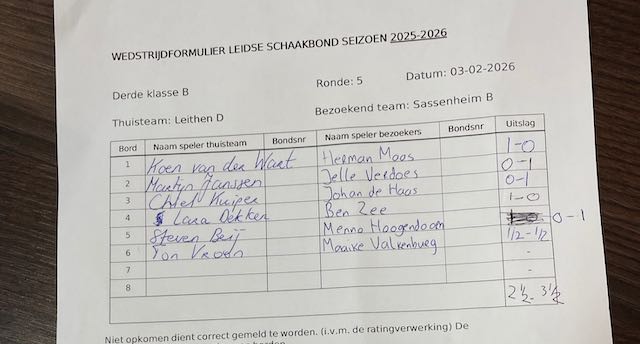 WEDSTRIJDFORMULIER LEIDSE SCHAAKBOND SEIZOEN 2025-2026
Derde klasse B Ronde: 5 Datum: 03-02-2026
Thuisteam: Leithen D Bezoekend team: Sassenheim B
Bord Naam speler thuisteam Bondsnr Naam speler bezoekers Bondsnr Uitslag
1 Koen van der Waart Herman Moos 1-0
2 Martijn Janssen Jelle Verdoes 0-1
3 Chiel Kuiper Johan de Haas 0-1
4 Lara Dekker Ben Zee 1-0
5 Steven Beij Menno Hoogendoorn 0-1
6 Ton Vroon Maaike Valkenburg 1/2-1/2
7 -
8 -
2 1/2 - 3 1/2
Niet opkomen dient correct gemeld te worden. (i.v.m. de ratingverwerking) De